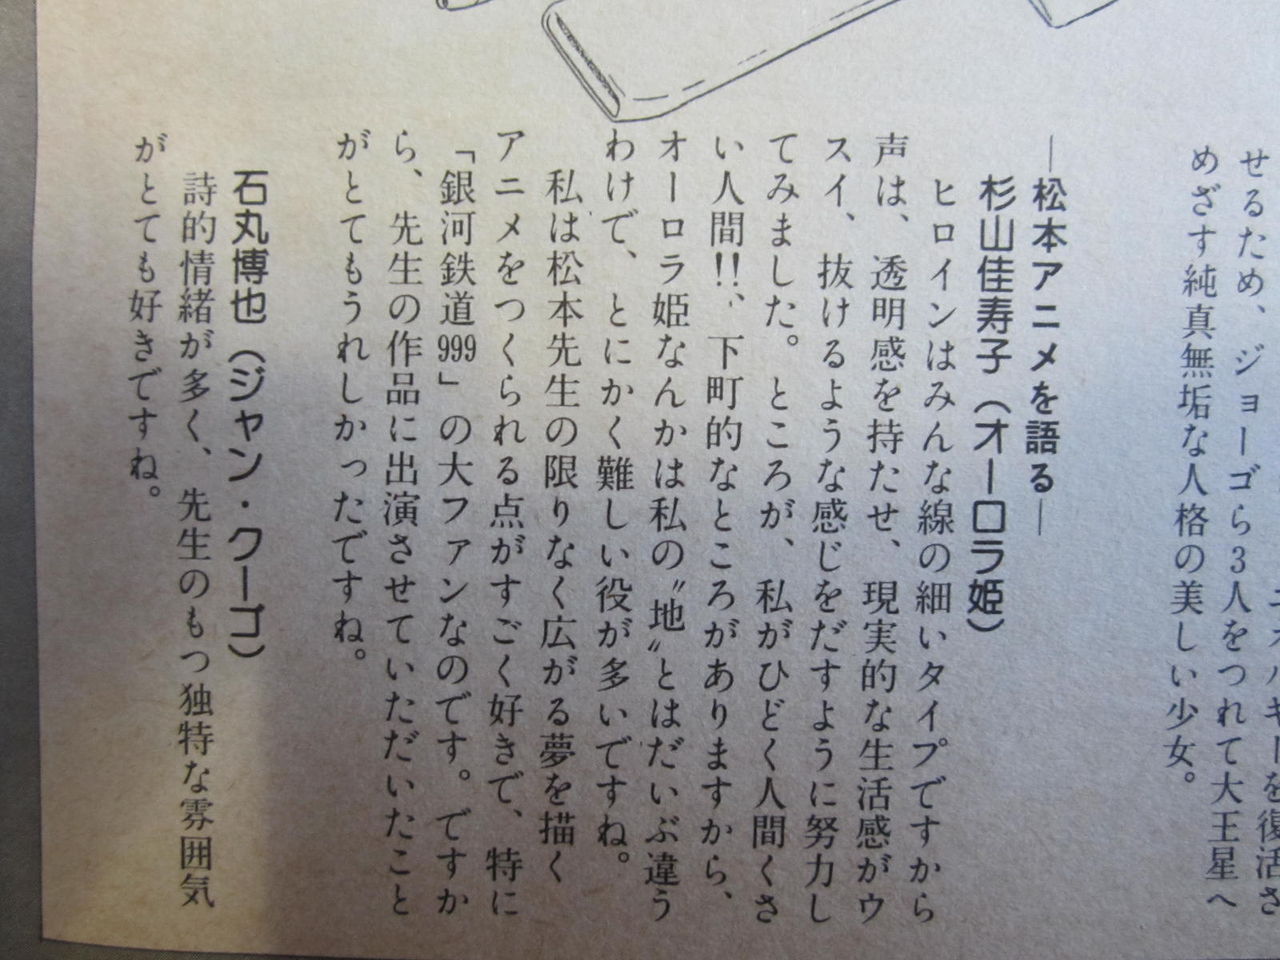 を復活さ
せるため、ジョーゴら3人をつれて大王星へ
めざす純真無垢な人格の美しい少女。
―松本アニメを語る―
杉山佳寿子（オーロラ姫）
ヒロインはみんな線の細いタイプですから
声は、透明感を持たせ、現実的な生活感がウ
スイ、抜けるような感じをだすように努力し
てみました。ところが、私がひどく人間くさ
い人間!!、下町的なところがありますから、
オーロラ姫なんかは私の〝地〟とはだいぶ違う
わけで、とにかく難しい役が多いですね。
私は松本先生の限りなく広がる夢を描く
アニメをつくられる点がすごく好きで、特に
「銀河鉄道999」の大ファンなのです。ですか
ら、先生の作品に出演させていただいたこと
がとてもうれしかったですね。
石丸博也（ジャン・クーゴ）
詩的情緒が多く、先生のもつ独特な雰囲気
がとても好きですね。